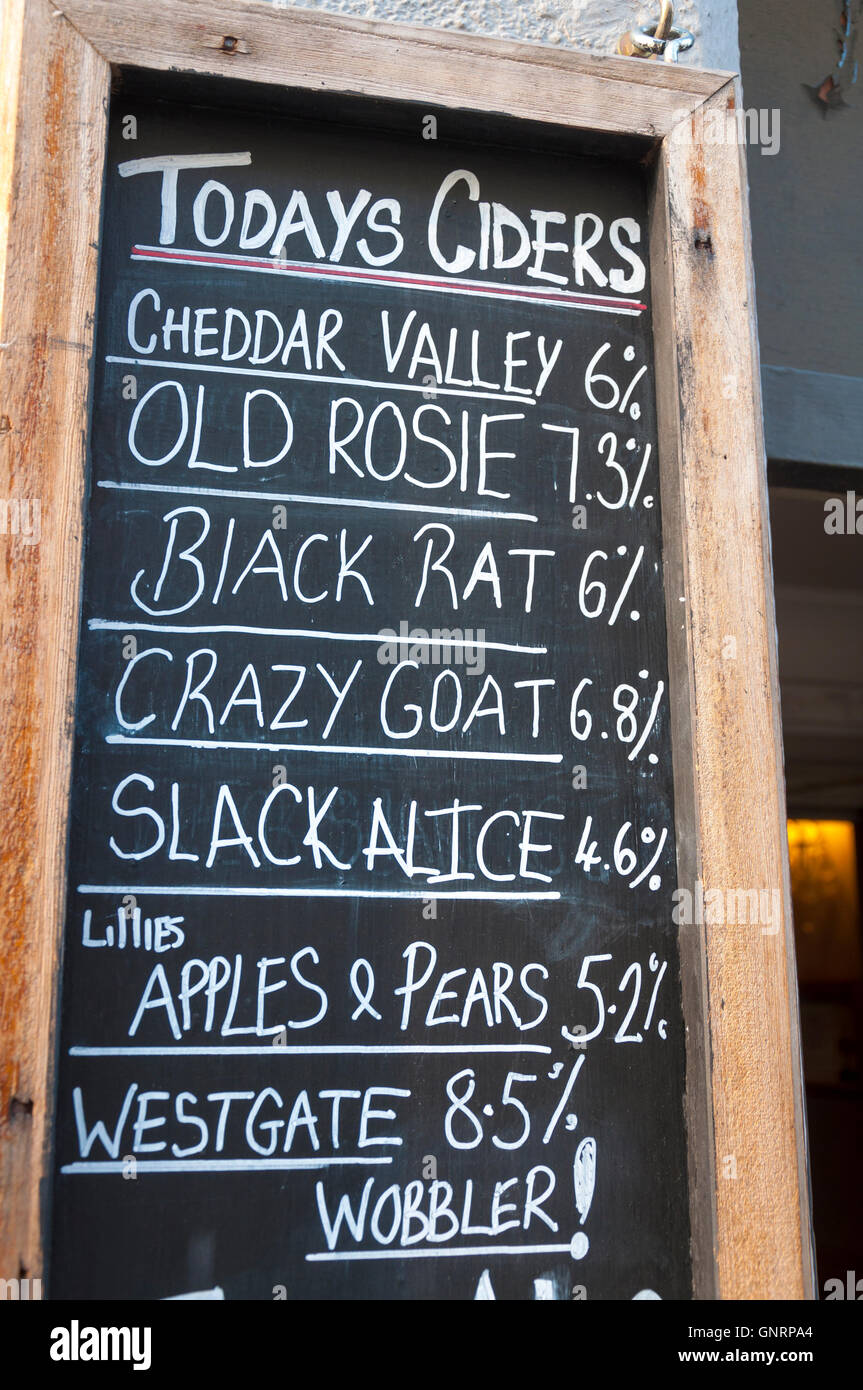 TODAYS CIDERS
CHEDDAR VALLEY 6%
OLD ROSIE 7.3%
BlACK RAT 6%
CRAZY GOAT 6.8%
SLACK ALICE 4.6%
LillIES
APPLES & PEARS 5.2%
WESTGATE 8.5%
WOBBLER!
alamy
Image ID: GNRPA4
www.alamy.com